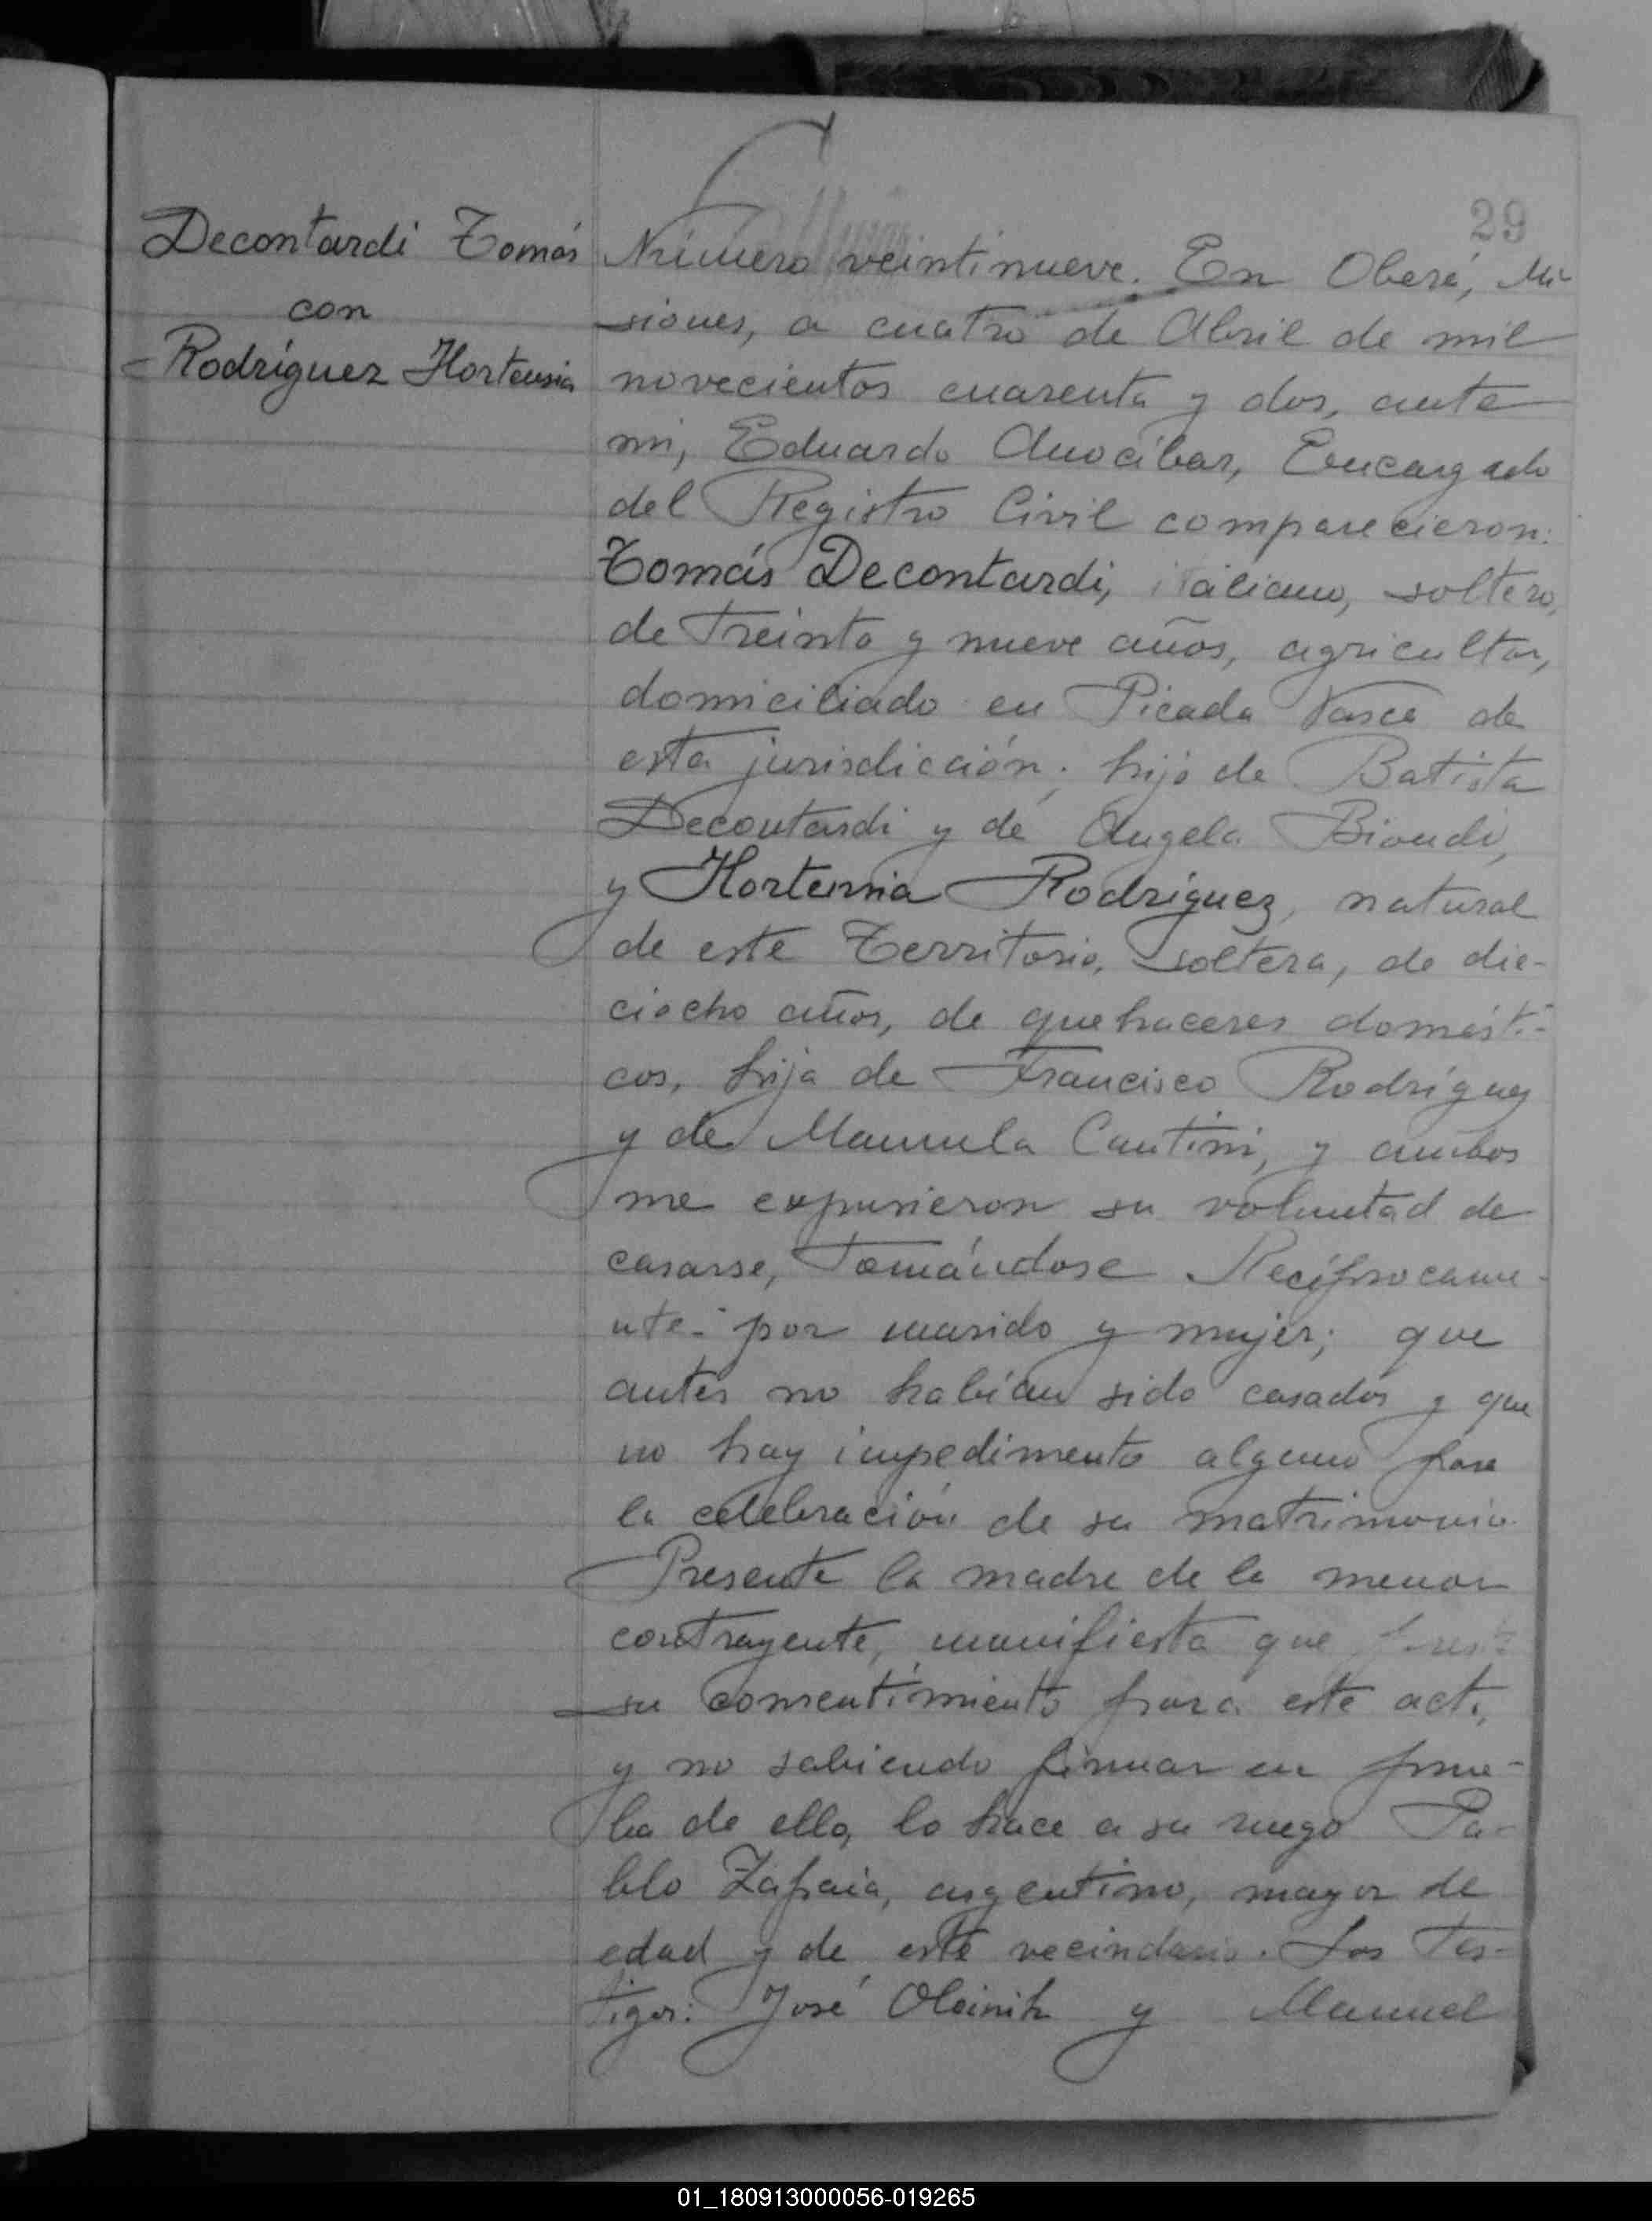 29
Decontardi Tomás
con
Rodríguez Hortensia
Número veintinueve. En Oberá, Mi-
siones, a cuatro de Abril de mil
novecientos cuarenta y dos, ante
mi, Eduardo Anocíbar, Encargado
del Registro Civil comparecieron:
Tomás Decontardi, italiano, soltero,
de treinta y nueve años, agricultor,
domiciliado en Picada Vasca de
esta jurisdicción; hijo de Batista
Decontardi y de Angela Biondi,
y Hortensia Rodríguez, natural
de este Territorio, soltera, de die-
ciocho años, de quehaceres domésti-
cos, hija de Francisco Rodríguez
y de Manuela Cantini, y ambos
me expusieron su voluntad de
casarse, Tomándose Recíprocame-
nte- por marido y mujer; que
antes no habían sido casados y que
no hay impedimento alguno para
la celebración de su matrimonio.
Presente la madre de la menor
contrayente, manifiesta que presta
su consentimiento para este acto,
y no sabiendo firmar en prue-
ba de ello, lo hace a su ruego Pa-
blo Zapaia, argentino, mayor de
edad y de este vecindario. Los Tes-
tigos: José Oleinik y Manuel
01_180913000056-019265